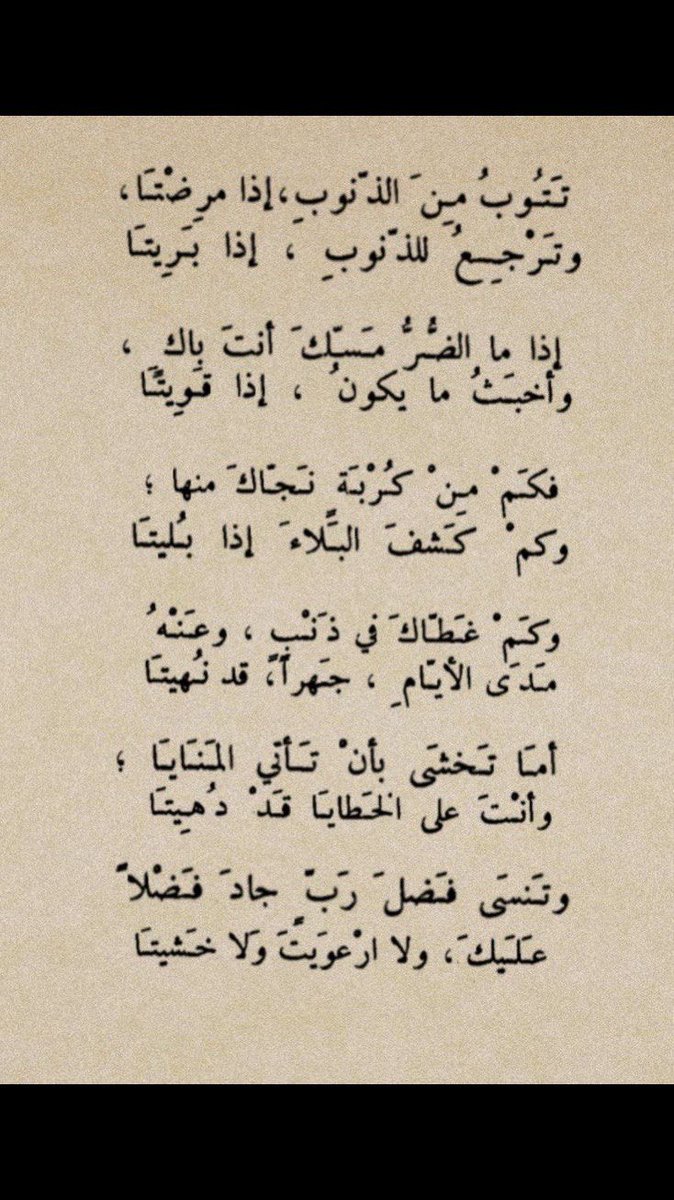 تَتُوبُ مِنَ الذّنوبِ،إذا مرِضْتَا،
وتَرْجِعُ للذّنوبِ ، إذا بَرِيتَا
إذا ما الضُّرُّ مَسّكَ أنتَ باكٍ ،
وأخبَثُ ما يكونُ ، إذا قوِيتَا
فكَمْ مِنْ كُرْبَة نَجّاكَ منها ؛
وكمْ كَشفَ البَلاءَ إذا بُليتَا
وكَمْ غَطّاكَ في ذَنْبٍ ، وعَنْهُ
مَدَى الأيّامِ ، جَهراً، قد نُهيتَا
أمَا تَخشَى بأنْ تَأتي المَنَايَا ؛
وأنْتَ على الخَطايَا قَدْ دُهِيتَا
وتَنسَى فَضلَ رَبّ جادَ فَضْلاً
عَلَيكَ، ولا ارْعوَيتَ وَلا خَشيتَا